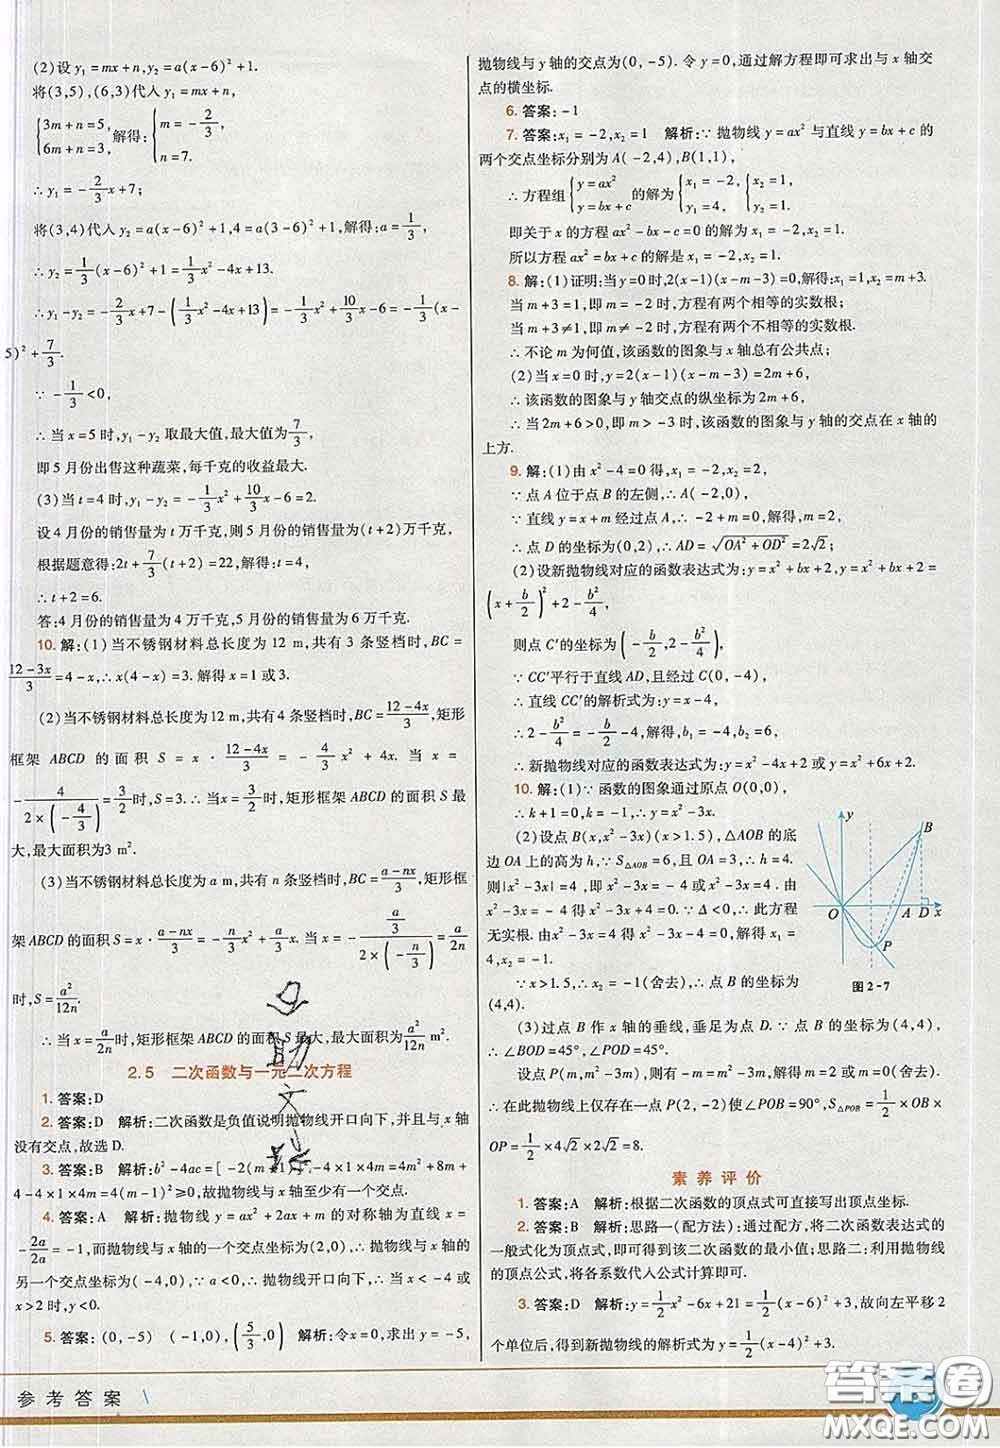 (2)设 y₁=mx+n,y₂=a(x-6)²+1.
将(3,5),(6,3)代入 y₁=mx+n,
{3m+n=5, 6m+n=3, 解得:{m=-2/3, n=7.
∴y₁=-2/3x+7;
将(3,4)代入 y₂=a(x-6)²+1,4=a(3-6)²+1,解得:a=1/3,
∴y₂=1/3(x-6)²+1=1/3x²-4x+13.
∴y₁-y₂=-2/3x+7-(1/3x²-4x+13)=-1/3x²+10/3x-6=-1/3(x-
5)²+7/3.
∵-1/3<0,
∴当 x=5 时,y₁-y₂ 取最大值,最大值为7/3,
即 5 月份出售这种蔬菜,每千克的收益最大.
(3)当 t=4 时,y₁-y₂=-1/3x²+10/3x-6=2.
设 4 月份的销售量为 t 万千克,则 5 月份的销售量为(t+2)万千克,
根据题意得:2t+7/3(t+2)=22,解得:t=4,
∴t+2=6.
答:4 月份的销售量为 4 万千克,5 月份的销售量为 6 万千克.
10. 解:(1)当不锈钢材料总长度为 12 m,共有 3 条竖档时,BC=
(12-3x)/3=4-x,∴x(4-x)=3. 解得 x=1 或 3.
(2)当不锈钢材料总长度为 12 m,共有 4 条竖档时,BC=(12-4x)/3,矩形
框架 ABCD 的面积 S=x·(12-4x)/3=-4/3x²+4x. 当 x=
-4/(2×(-4/3))=3/2时,S=3. ∴当 x=3/2时,矩形框架 ABCD 的面积 S 最
大,最大面积为3 m².
(3)当不锈钢材料总长度为 a m,共有 n 条竖档时,BC=(a-nx)/3,矩形框
架 ABCD 的面积 S=x·(a-nx)/3=-n/3x²+a/3x. 当 x=-(a/3)/(2×(-n/3))=a/2n
时,S=a²/12n.
∴当 x=a/2n时,矩形框架 ABCD 的面积 S 最大,最大面积为a²/12n m².
2.5 二次函数与一元二次方程
1. 答案:D
2. 答案:D 解析:二次函数是负值说明抛物线开口向下,并且与 x 轴
没有交点,故选 D.
3. 答案:B 解析:b²-4ac=[-2(m+1)]²-4×1×4m=4m²+8m+
4-4×1×4m=4(m-1)²≥0,故抛物线与 x 轴至少有一个交点.
4. 答案:A 解析:抛物线 y=ax²+2ax+m 的对称轴为直线 x=
-2a/2a=-1,而抛物线与 x 轴的一个交点坐标为(2,0),∴抛物线与 x 轴的
另一个交点坐标为(-4,0),∵a<0,∴抛物线开口向下,∴当 x<-4 或
x>2 时,y<0.
5. 答案:(0,-5) (-1,0),(5/3,0) 解析:令 x=0,求出 y=-5,
抛物线与 y 轴的交点为(0,-5). 令 y=0,通过解方程即可求出与 x 轴交
点的横坐标.
6. 答案:-1
7. 答案:x₁=-2,x₂=1 解析:∵抛物线 y=ax² 与直线 y=bx+c 的
两个交点坐标分别为 A(-2,4),B(1,1),
∴方程组{y=ax² y=bx+c 的解为{x₁=-2, y₁=4, {x₂=1, y₂=1.
即关于 x 的方程 ax²-bx-c=0 的解为 x₁=-2,x₂=1.
所以方程 ax²=bx+c 的解是 x₁=-2,x₂=1.
8. 解:(1)证明:当 y=0 时,2(x-1)(x-m-3)=0,解得:x₁=1,x₂=m+3.
当 m+3=1,即 m=-2 时,方程有两个相等的实数根;
当 m+3≠1,即 m≠-2 时,方程有两个不相等的实数根.
∴不论 m 为何值,该函数的图象与 x 轴总有公共点;
(2)当 x=0 时,y=2(x-1)(x-m-3)=2m+6,
∴该函数的图象与 y 轴交点的纵坐标为 2m+6,
∴当 2m+6>0,即 m>-3 时,该函数的图象与 y 轴的交点在 x 轴的
上方.
9. 解:(1)由 x²-4=0 得,x₁=-2,x₂=2,
∵点 A 位于点 B 的左侧,∴A(-2,0),
∵直线 y=x+m 经过点 A,∴-2+m=0,解得,m=2,
∴点 D 的坐标为(0,2),∴AD=√(OA²+OD²)=2√2;
(2)设新抛物线对应的函数表达式为:y=x²+bx+2,y=x²+bx+2=
(x+b/2)²+2-b²/4,
则点 C′的坐标为(-b/2,2-b²/4),
∵CC′平行于直线 AD,且经过 C(0,-4),
∴直线 CC′的解析式为:y=x-4,
∴2-b²/4=-b/2-4,解得,b₁=-4,b₂=6,
∴新抛物线对应的函数表达式为:y=x²-4x+2 或 y=x²+6x+2.
10. 解:(1)∵函数的图象通过原点 O(0,0),
∴k+1=0,k=-1,∴y=x²-3x.
(2)设点 B(x,x²-3x)(x>1.5),△AOB 的底
边 OA 上的高为 h,∵S△AOB=6,且 OA=3,∴h=4.
则|x²-3x|=4,即 x²-3x=-4 或 x²-3x=4. 由
x²-3x=-4 得 x²-3x+4=0. ∵Δ<0,∴此方程
无实根. 由 x²-3x=4 得 x²-3x-4=0. 解得 x₁=
4,x₂=-1.
∵x>1.5,∴x₂=-1(舍去),∴点 B 的坐标为
(4,4).
y
B
O
A
D
x
P
图 2-7
(3)过点 B 作 x 轴的垂线,垂足为点 D. ∵点 B 的坐标为(4,4),
∴∠BOD=45°,∠POD=45°.
设点 P(m,m²-3m),则 m=-(m²-3m). 解得 m=2 或 m=0(舍去).
∴在此抛物线上仅存在一点 P(2,-2)使∠POB=90°,S△POB=1/2×OB×
OP=1/2×4√2×2√2=8.
素养评价
1. 答案:A 解析:根据二次函数的顶点式可直接写出顶点坐标.
2. 答案:B 解析:思路一(配方法):通过配方,将二次函数表达式的
一般式化为顶点式,即可得到该二次函数的最小值;思路二:利用抛物线
的顶点公式,将各系数代入公式计算即可.
3. 答案:D 解析:y=1/2x²-6x+21=1/2(x-6)²+3,故向左平移 2
个单位后,得到新抛物线的解析式为 y=1/2(x-4)²+3.
参考答案
答案圈
MXQE.COM